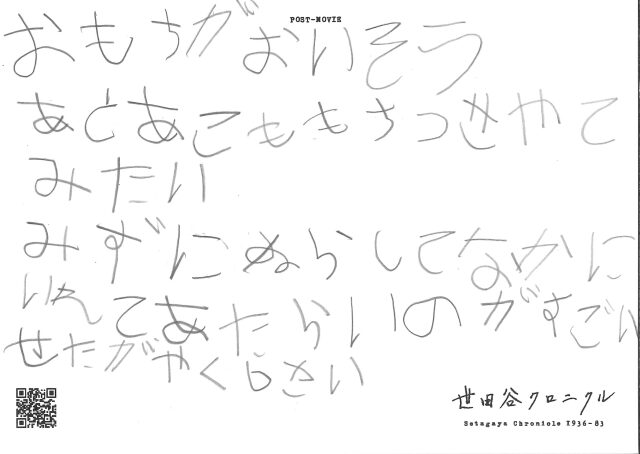 POST-MOVIE
おもちがおいそう
あとあこももちつきやて
みたい
みずにぬらしてなかに
いれてあたらいのがすごい
せたがやくらさい
世田谷クロニクル
Setagaya Chroniole 1936-83